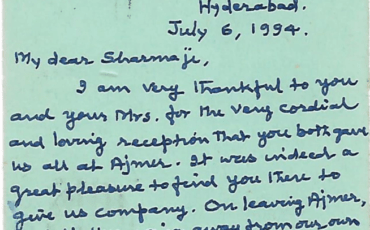 Hyderabad.
July 6, 1994.
My dear Sharmaji,
I am very thankful to you
and your Mrs. for the very cordial
and loving reception that you both gave
us all at Ajmer. It was indeed a
great pleasure to find you there to
give us company. On leaving Ajmer,
away from our own